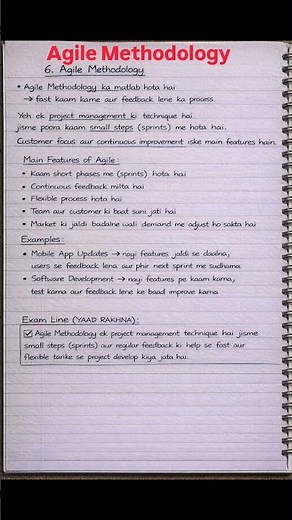 Agile Methodology
6. Agile Methodology
• Agile Methodology ka matlab hota hai
→ fast kaam karne aur feedback lene ka process.
Yeh ek project management ki technique hai
jisme poora kaam small steps (sprints) me hota hai.
Customer focus aur continuous improvement iske main features hain.
Main Features of Agile:
• Kaam short phases me (sprints) hota hai
• Continuous feedback milta hai
• Flexible process hota hai
• Team aur customer ki baat suni jati hai
• Market ki jaldi badalne wali demand me adjust ho sakta hai
Examples:
• Mobile App Updates → nayi features jaldi se daalna,
users se feedback lena aur phir next sprint me sudharna
• Software Development → nayi features pe kaam karna,
test karna aur feedback lene ke baad improve karna
Exam Line (YAAD RAKHNA):
☑ Agile Methodology ek project management technique hai jisme
small steps (sprints) aur regular feedback ki help se fast aur
flexible tarike se project develop kiya jata hai.